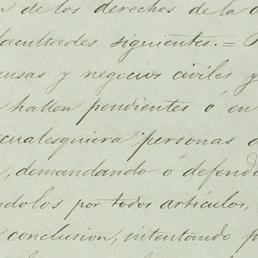 n de los derechos de la
facultades siguientes.=
usas y negocios civiles y
hallen pendientes ó en
cualesquiera personas
, demandando ó defend
ndolos por todos artículos,
conclusion, intentando p